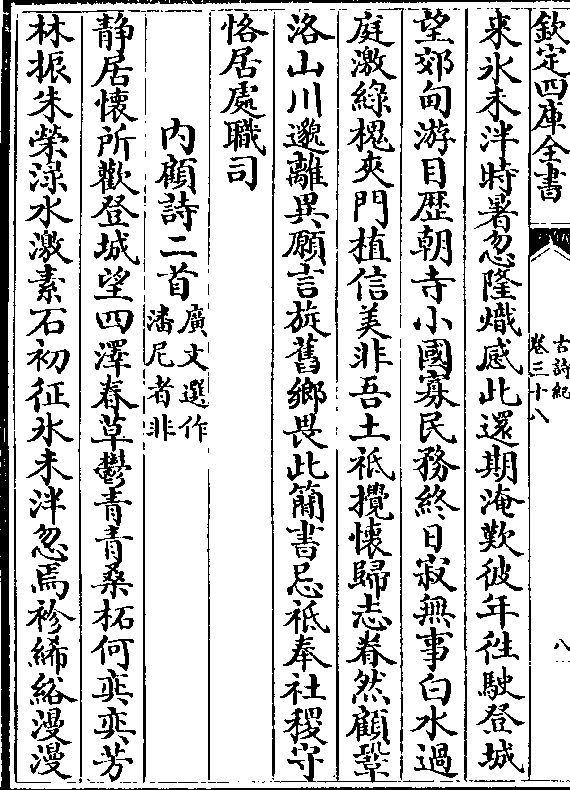 欽定四庫全書
古詩紀
卷三十八
八
来氷未泮時暑忽隆熾感此還期淹歎彼年徃駛登城
望郊甸游目歴朝寺小國寡民務終日寂無事白水過
庭激綠槐夾門植信美非吾土祗攪懷歸志眷然顧鞏
洛山川邈離異願言旋舊鄉畏此簡書忌祗奉社稷守
恪居處職司
内顧詩二首
廣文選作
潘尼者非
静居懷所歡登城望四澤春草鬱青青桑柘何奕奕芳
林振朱榮渌水激素石初征氷未泮忽焉袗絺綌漫漫